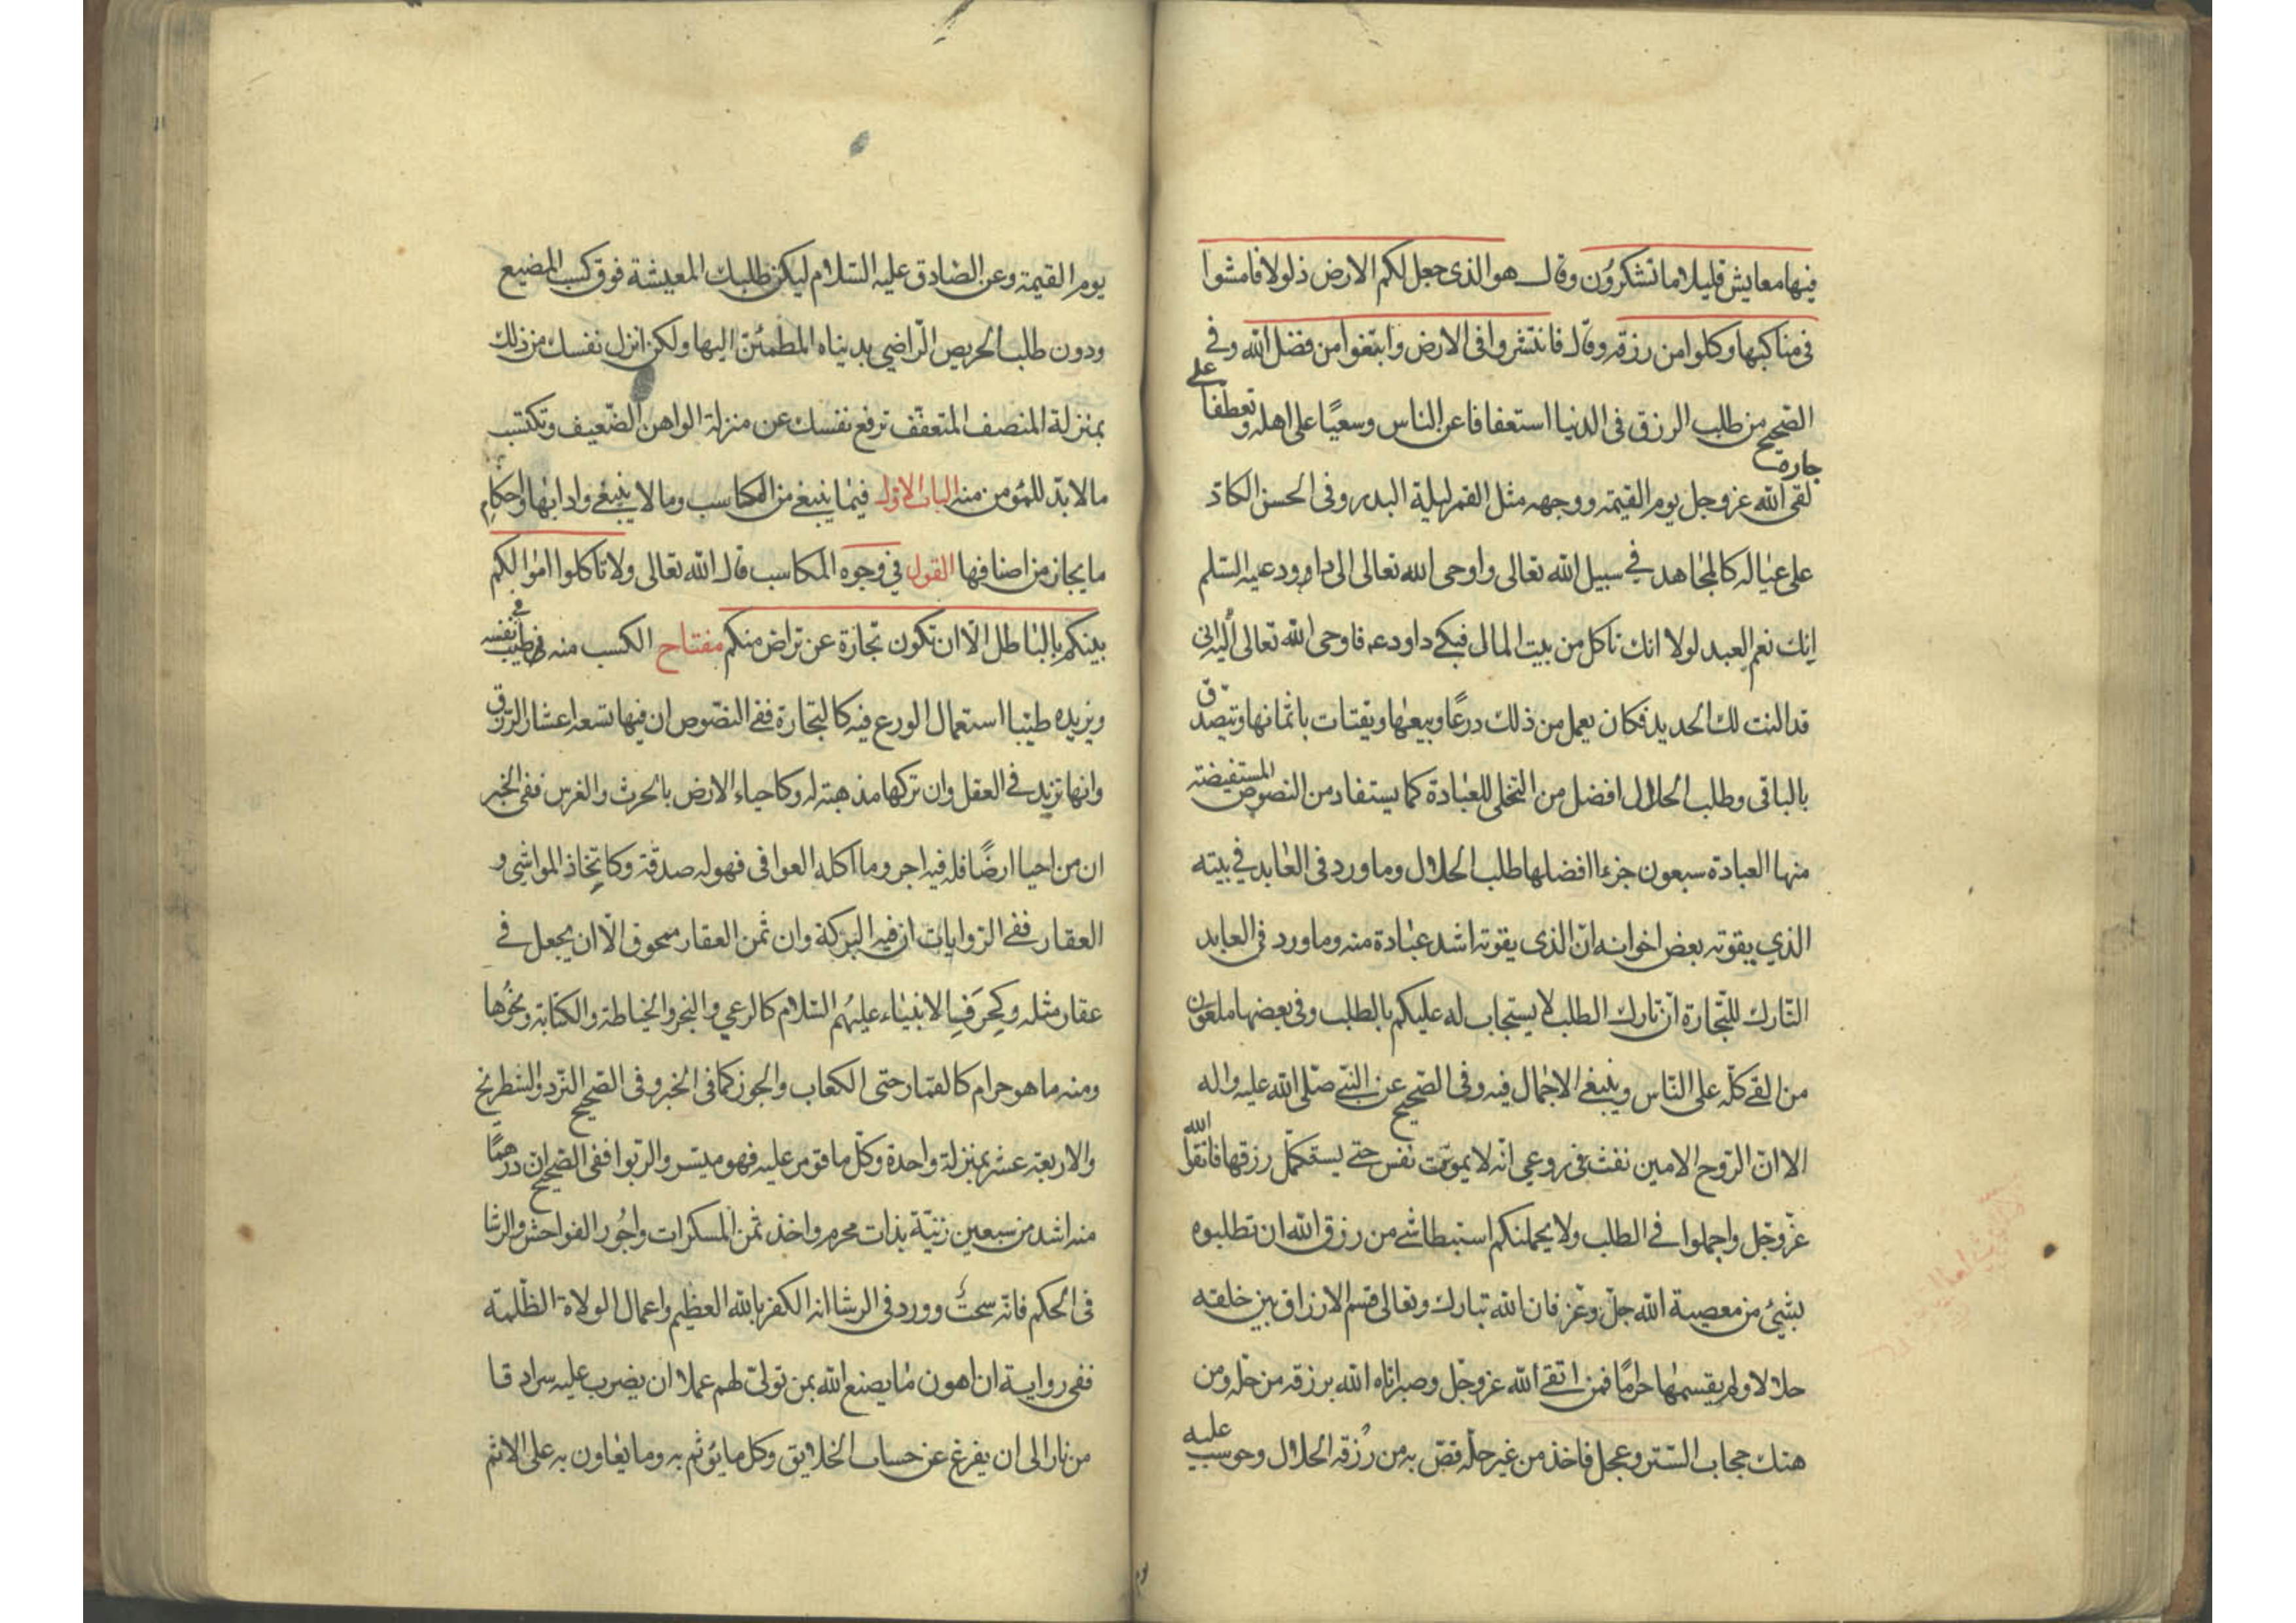 فيها معايش قليلا ما تشكرون وقال هو الذى جعل لكم الارض ذلولا فامشوا
فى مناكبها وكلوا من رزقه وقال فانتشروا فى الارض وابتغوا من فضل الله وفى
الصحيح من طلب الرزق فى الدنيا استعفافا عن الناس وسعيًا على اهله وتعطفا على
جاره لقى الله عز وجل يوم القيمة ووجهه مثل القمر ليلة البدر وفى الحسن الكادّ
على عياله كالمجاهد في سبيل الله تعالى واوحى الله تعالى الى داوود عليه السلم
انك نعم العبد لولا انك تاكل من بيت المال فبكى داود عم فاوحى الله تعالى اليه انى
قد النت لك الحديد فكان يعمل من ذلك درعًا ويبيعها ويقتات باثمانها ويتصدّق
بالباقى وطلب الحلال افضل من التخلى للعبادة كما يستفاد من النصوص المستفيضة
منها العبادة سبعون جزءا افضلها طلب الحلال وما ورد فى العابد في بيته
الذي يقوته بعض اخوانه انّ الذى يقوته اشد عبادة منه وما ورد فى العابد
التارك للتّجارة انّ تارك الطلب لا يستجاب له عليكم بالطلب وفى بعضها ملعون
من القى كلّه على النّاس وينبغى الاجمال فيه وفى الصحيح عن النبى صلى الله عليه واله
الا انّ الرّوح الامين نفث فى روعي انّه لا يموت نفس حتى يستكمل رزقها فاتقوا الله
عزّ وجّل واجملوا في الطلب ولا يحملنكم استبطا شئ من رزق الله ان تطلبوه
بشيئ من معصية الله جلّ وعز فان الله تبارك وتعالى قسم الارزاق بين خلقه
حلالا ولم يقسمها حرامًا فمن اتقى الله عز وجل وصبر اتاه الله برزقه من حلّه ومن
هتك حجاب الستر وعجل فاخذ من غير حلّه قصّ به من رزقه الحلال وحوسب عليه
يوم القيمة وعن الصّادق عليه السّلام ليكن طلبك المعيشة فوق كسب المضيع
ودون طلب الحريص الرّاضي بدنياه المطمئنّ اليها ولكن انزل نفسك من ذلك
بمنزلة المنصف المتعفّف ترفع نفسك عن منزلة الواهن الضّعيف وتكتسب
ما لا بدّ للمؤمن منه الباب الاول فيما ينبغي من المكاسب وما لا ينبغي وادابها واحكام
ما يجاز من اصنافها القول في وجوه المكاسب قال الله تعالى ولا تاكلوا اموالكم
بينكم بالباطل الّا ان تكون تجارة عن تراض منكم مفتاح الكسب منه طيب في نفسه
ويزيده طيّبا استعمال الورع فيه كالتجارة ففى النصّوص ان فيها تسعة اعشار الرّزق
وانها تزيد في العقل وان تركها مذهبة له وكاحياء الارض بالحرث والغرس ففى الخبر
ان من احيا ارضًا فله فيه اجر وما اكله العوافى فهو له صدقة وكاتّخاذ المواشي و
العقار ففى الرّوايات ان فيه البركة وان ثمن العقار ممحوق الّا ان يجعل في
عقار مثله وكحرف الانبياء عليهم السّلام كالرعي والنجر والخياطة والكتابة ونحوها
ومنه ما هو حرام كالقمار حتى الكعاب والجوز كما فى الخبر وفى الصّحيح النّرد والشطرنج
والاربعة عشر بمنزلة واحدة وكلّ ما قومر عليه فهو ميسر والرّبوا ففى الصّحيح ان درهمًا
منه اشد من سبعين زنيّة بذات محرم واخذ ثمن المسكرات واجور الفواحش والرشا
فى الحكم فانه سحت وورد فى الرشا انه الكفر بالله العظيم واعمال الولاة الظلمة
ففى رواية ان اهون ما يصنع الله بمن تولّى لهم عملا ان يضرب عليه سرادقا
من نار الى ان يفرغ عن حساب الخلايق وكل ما يؤثم به وما يعاون به على الاثم